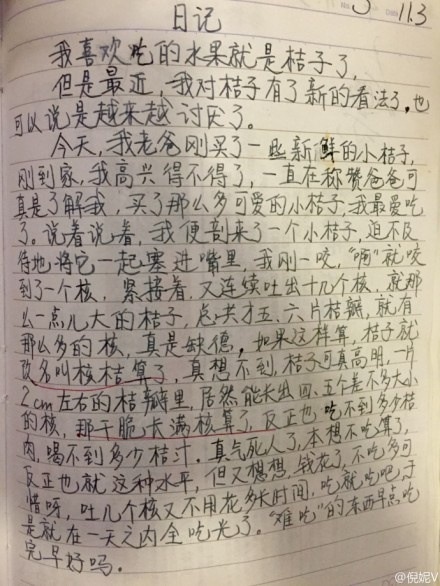 11.3
日记
我喜欢吃的水果就是桔子了,
但是最近,我对桔子有了新的看法了,也
可以说是越来越讨厌了。
今天,我老爸刚买了一些新鲜的小桔子,
刚到家,我高兴得不得了,一直在称赞爸爸可
真是了解我,买了那么多可爱的小桔子,我最爱吃
了。说着说着,我便剖来了一个小桔子,迫不及
待地将它一起塞进嘴里,我刚一咬,“啊”就咬
到了一个核,紧接着,又连续吐出十几个核,就那
么一点儿大的桔子,总共才五、六片桔瓣,就有
那么多的核,真是缺德,如果这样算,桔子就
改名叫核桔算了,真想不到,桔子可真高明,一片
2cm左右的桔瓣里,居然能长出四、五个差不多大小
的核,那干脆长满核算了,反正也吃不到多少桔
肉,喝不到多少桔汁。真气死人了,本想不吃算了,
反正也就这种水平,但又想想,钱花了,不吃多可
惜呀,吐几个核又不用花多长时间,吃就吃吧,于
是就在一天之内全吃光了。“难吃”的东西早点吃
完早好吗。
@倪妮V